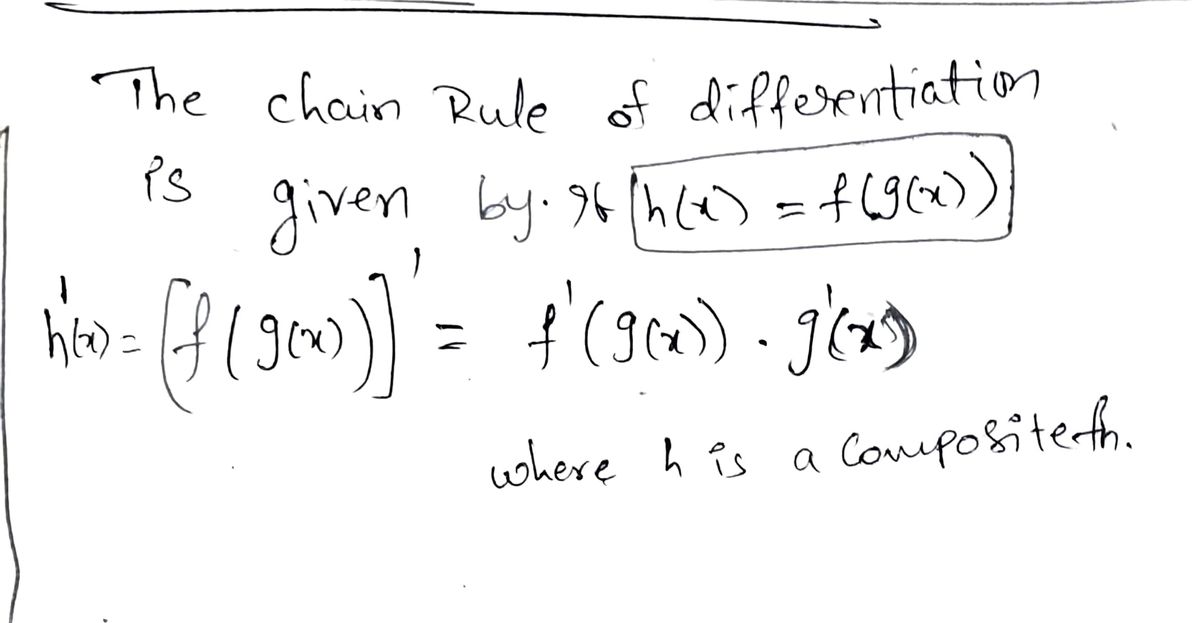 The chain Rule of differentiation
is given by. If h(x) = f(g(x))
h'(x) = [f(g(x))]' = f'(g(x)) . g'(x)
where h is a composite fn.